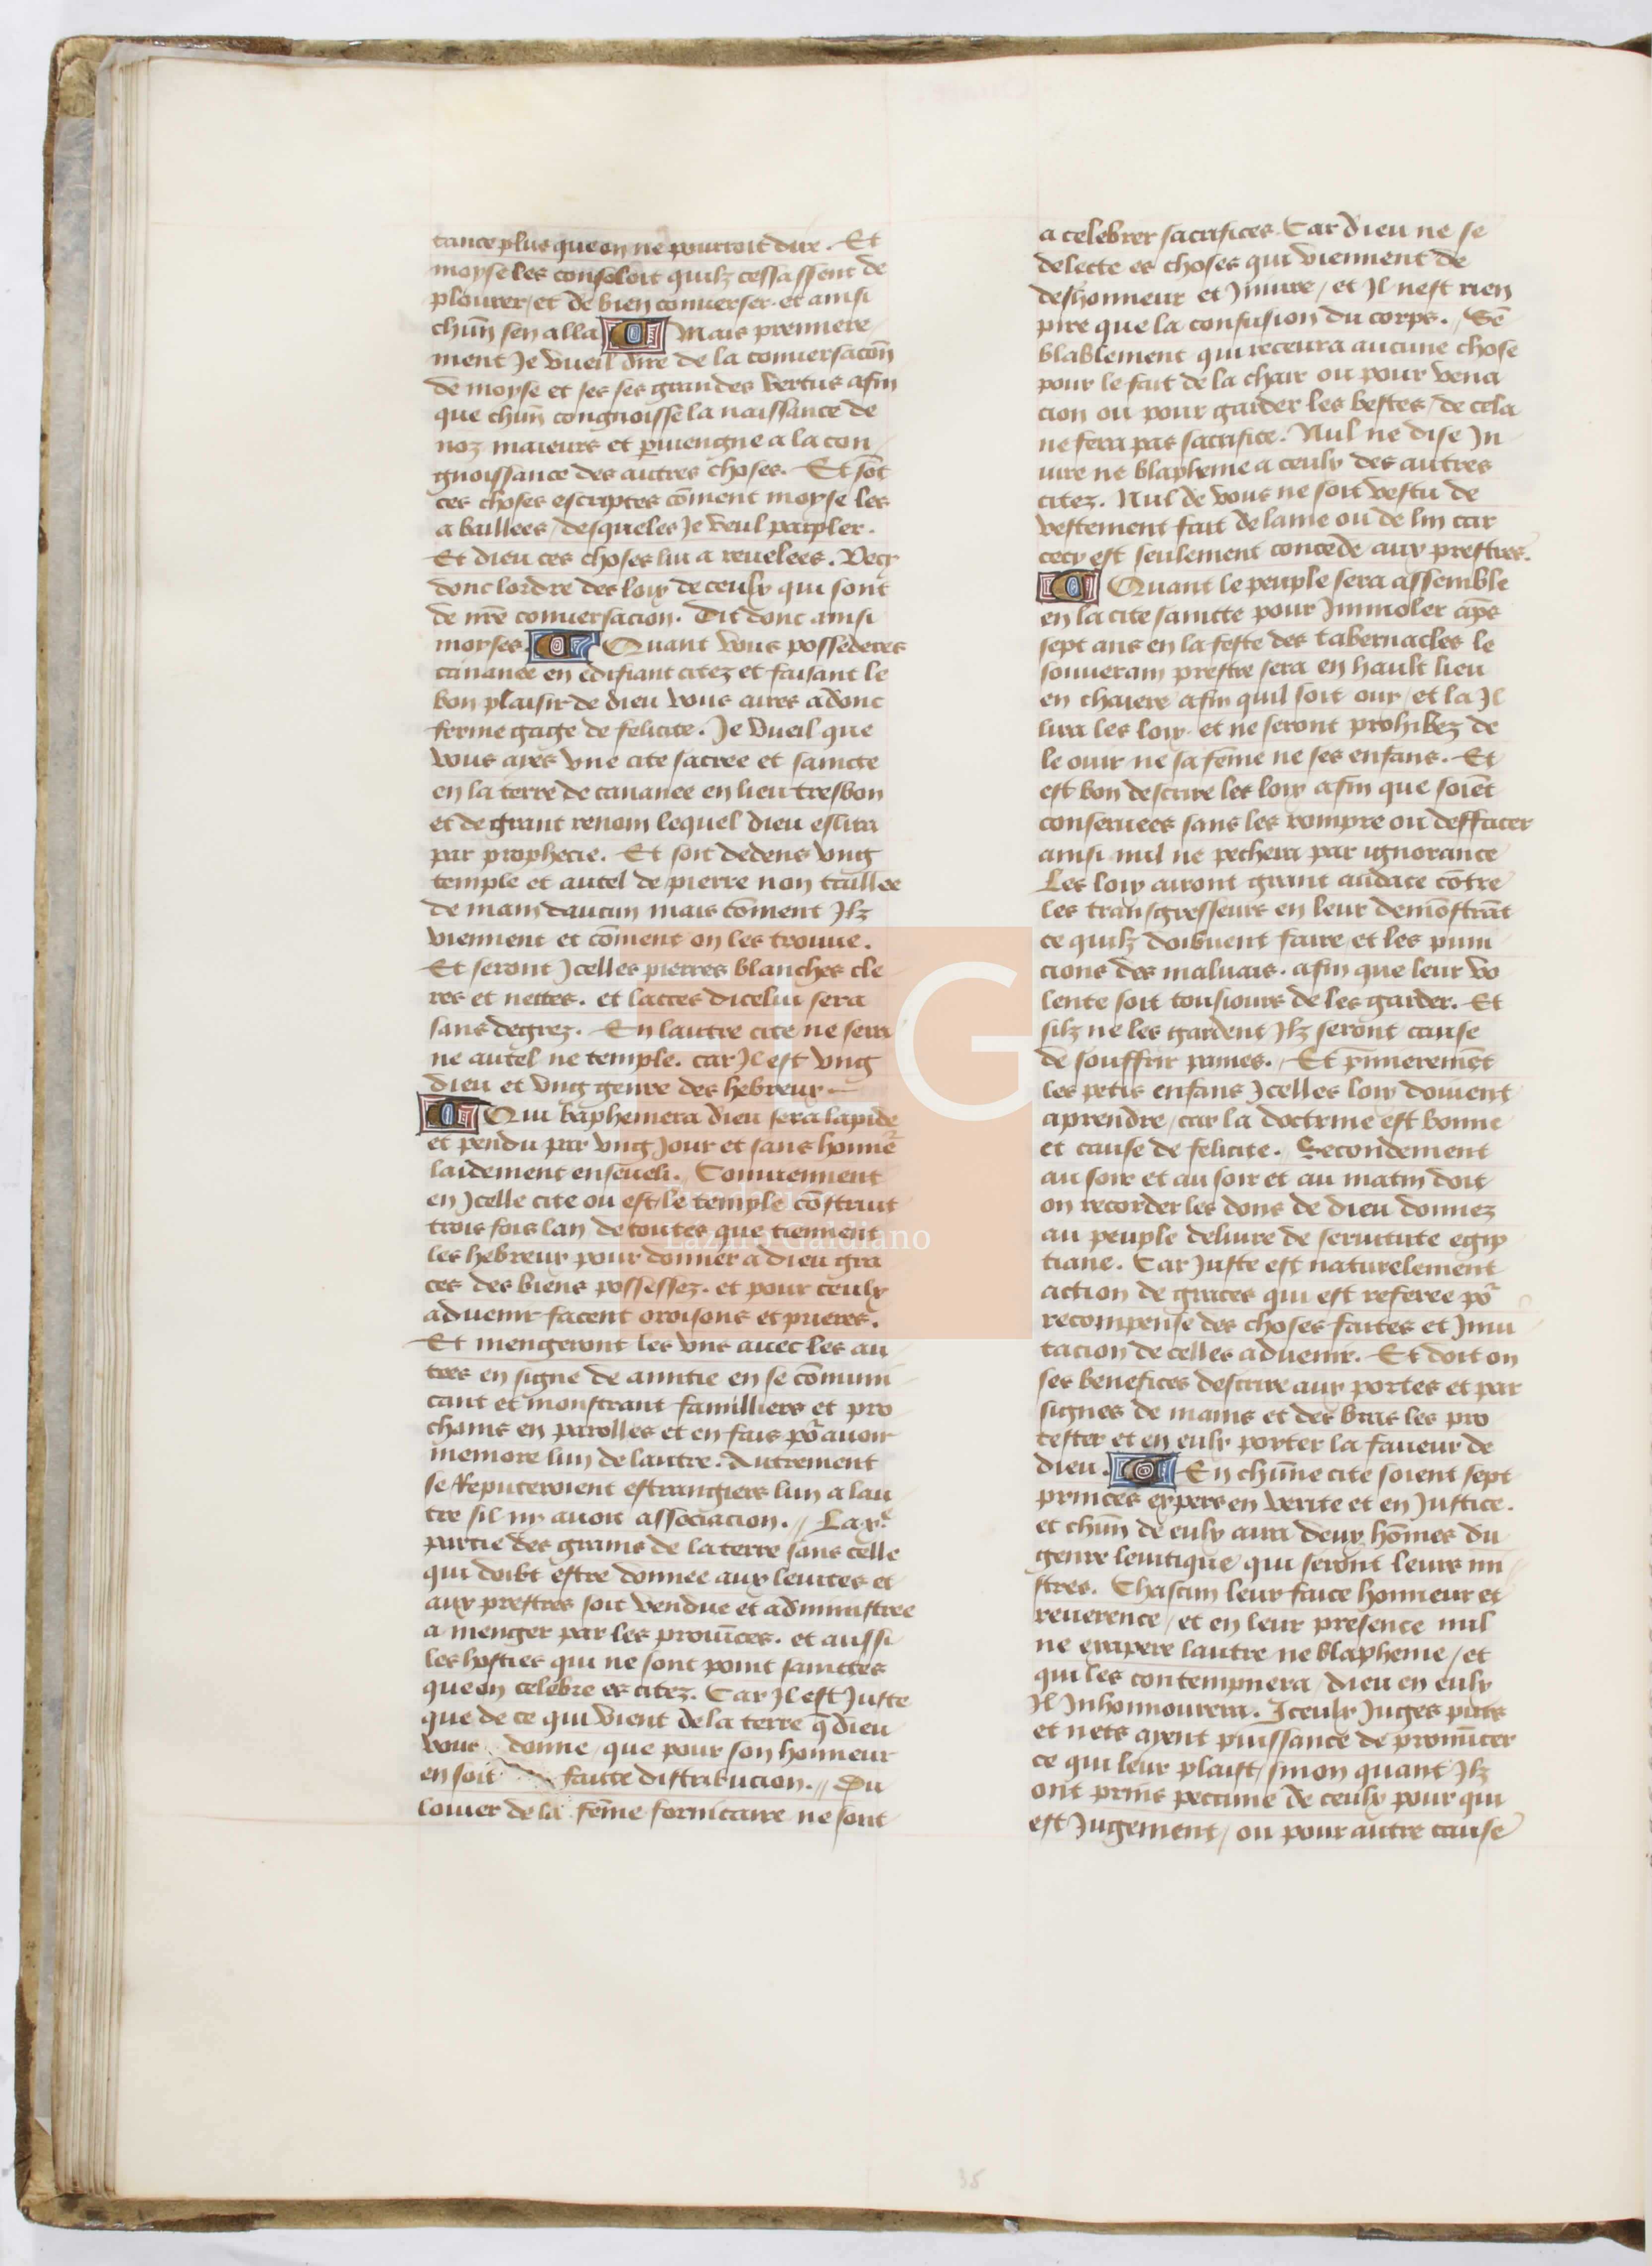 tance plus que on ne pourroit dire. Et
moyse les consoloit quilz cessassent de
plourer / et de bien conuerser. et ainsi
chūn sen alla Mais premiere
ment Je vueil dire de la conuersacōn
de moyse et ses ses grandes vertus afin
que chūn congnoisse la naissance de
noz maieurs et puiengne a la con
gnoissance des autres choses. Et sōt
ces choses escriptes cōment moyse les
a baillees / desqueles Je veul parpler.
Et dieu ces choses lui a reuelees. Vecy
donc lordre des loix de ceulx qui sont
de nrē conuersacion. Dit donc ainsi
moyses. Quant vous possederes
cananee en edifiant citez et faisant le
bon plaisir de dieu vous aures adonc
ferme gage de felicite. Je vueil que
vous ayes vne cite sacree et saincte
en la terre de cananee en lieu tresbon
et de grant renom lequel dieu eslira
par prophecie. Et soit dedens vng
temple et autel de pierre non taillee
de main daucun mais cōment Ilz
viennent et cōment on les trouue.
Et seront Jcelles pierres blanches cle
res et nettes. et lacces dicelui sera
sans degrez. En lautre cite ne sera
ne autel ne temple. car Jl est vng
dieu et vng genre des hebreux
Qui baphemera dieu sera lapide
et pendu par vng Jour et sans honne
laidement enseueli. Conuiennent
en Jcelle cite ou est le temple cōstruit
trois fois lan de toutes que tiennent
les hebreux pour donner a dieu gra
ces des biens possessez. et pour ceulx
aduenir facent oroisons et prieres.
Et mengeront les vns auec les au
tres en signe de amitie en se cōmuni
cant et monstrant familliers et pro
chains en parolles et en fais po avoir
memore lun de lautre. Autrement
se Reputeroient estrangiers lun a lau
tre sil ny auoit associacion. // La xe
partie des grains de la terre sans celle
qui doibt estre donnee aux leuites et
aux prestres soit vendue et administree
a menger par les prouīces. et aussi
les hosties qui ne sont point sainctes
que on celebre es citez. Car Jl est Juste
que de ce qui vient de la terre q̄ dieu
vous donne / que pour son honneur
en soit faitte distribucion. // Du
louier de la fēme fornicaire ne sont
a celebrer sacrifices. Car dieu ne se
delecte es choses qui viennent de
deshonneur et Iniure / et Jl nest rien
pire que la confusion du corps. // Sē
blablement qui receura aucune chose
pour le fait de la chair ou pour vena
cion ou pour garder les bestes / de cela
ne fera pas sacrifice. Nul ne dise In
iure ne blapheme a ceulx des autres
citez. Nul de vous ne soit vestu de
vestement fait de laine ou de lin car
cecy est seulement concede aux prestres.
Quant le peuple sera assemble
en la cite saincte pour Jmmoler aps
sept ans en la feste des tabernacles le
souuerain prestre sera en hault lieu
en chaiere afin quil soit ouy / et la Jl
lira les loix. et ne seront prohibez de
le ouir ne sa fēme ne ses enfans. Et
est bon descrire les loix afin que soiēt
conseruees sans les rompre ou deffacer
ainsi nul ne pechera par ignorance
Les loix auront grant audace cōtre
les transgresseurs en leur demōstrāt
ce quilz doibuent faire / et les puni
cions des maluais. afin que leur vo
lente soit tousiours de les garder. Et
silz ne les gardent Ilz seront cause
de souffrir paines. // Et p̄mieremēt
les petis enfans Jcelles loix doiuent
aprendre / car la doctrine est bonne
et cause de felicite. // Secondement
au soir et au soir et au matin doit
on recorder les dons de dieu donnez
au peuple deliure de seruitute egip
tiane. Car Juste est naturelement
action de graces qui est referee po
recompense des choses faites et Jnui
tacion de celles aduenir. Et doit on
ses benefices descrire aux portes et par
signes de mains et des bras les pro
tester et en eulx porter la faueur de
dieu. En chūne cite soient sept
princes expers en verite et en Justice.
et chūn de eulx aura deux hōmes du
genre leuitique qui seront leurs mi
stres. Chascun leur face honneur et
reuerence / et en leur presence nul
ne exapere lautre ne blapheme / et
qui les contempnera / dieu en eulx
Jl Inhonnourera. Iceulx Juges purs
et nets ayent puissance de pronūcer
ce qui leur plaist / sinon quant Ilz
ont prins peccune de ceulx pour qui
est Jugement / ou pour autre cause
35
LG
Lázaro Galdiano